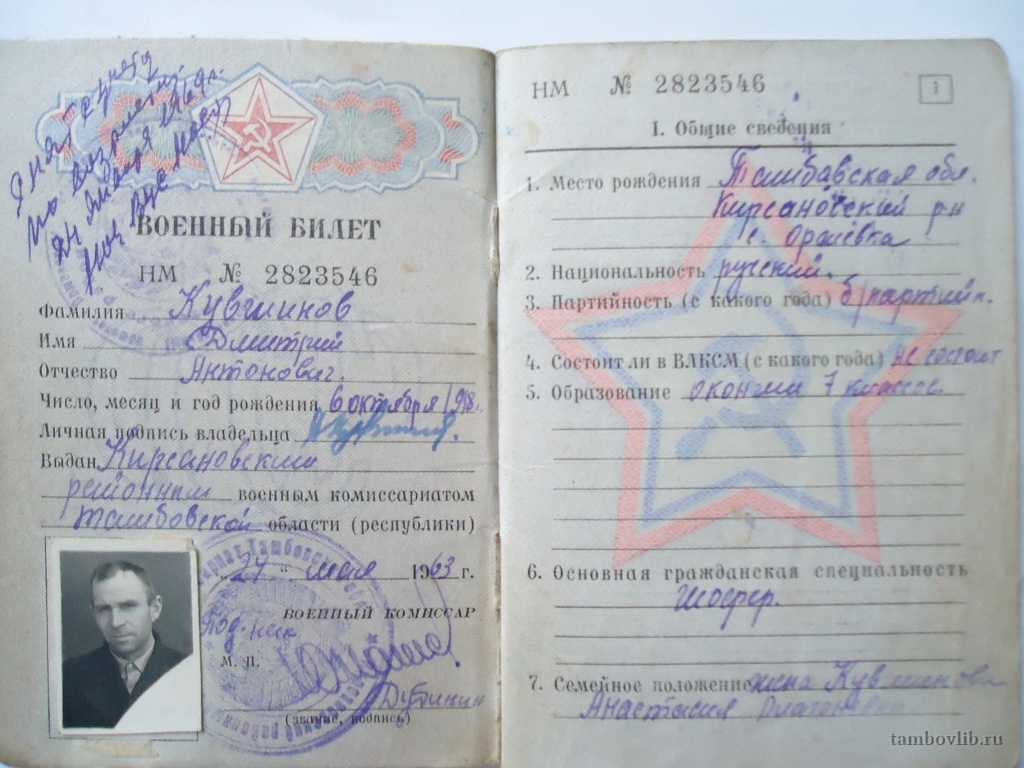 Снят с учета
по возрасту
24 января 1969 г.
ВОЕННЫЙ БИЛЕТ
НМ № 2823546
Фамилия Кувшинов
Имя Дмитрий
Отчество Антонович.
Число, месяц и год рождения 6 октября 1918г.
Личная подпись владельца
Выдан Кирсановским
районным военным комиссариатом
Тамбовской области (республики)
„24“ мая 1963 г.
ВОЕННЫЙ КОМИССАР
Под-ник
М. П.
Дубинин
(звание, подпись)
НМ № 2823546
1
I. Общие сведения
1. Место рождения Тамбовская обл.
Кирсановский р-н
с. Оржевка
2. Национальность русский.
3. Партийность (с какого года) б/партийн.
4. Состоит ли в ВЛКСМ (с какого года) не состоит
5. Образование окончил 7 классов.
6. Основная гражданская специальность
Шофер.
7. Семейное положение жена Кувшинова
Анастасия
tambovlib.ru